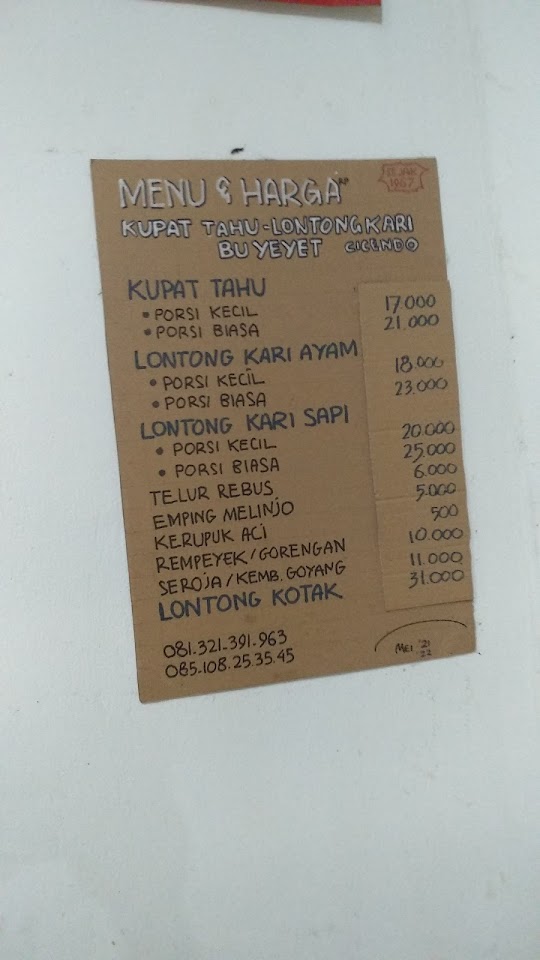 SEJAK
1967
MENU & HARGA RP
KUPAT TAHU-LONTONGKARI
BU YEYET CICENDO
KUPAT TAHU
• PORSI KECIL 17.000
• PORSI BIASA 21.000
LONTONG KARI AYAM
• PORSI KECIL 18.000
• PORSI BIASA 23.000
LONTONG KARI SAPI
• PORSI KECIL 20.000
• PORSI BIASA 25.000
TELUR REBUS 6.000
EMPING MELINJO 5.000
KERUPUK ACI 500
REMPEYEK/GORENGAN 10.000
SEROJA/KEMB. GOYANG 11.000
LONTONG KOTAK 31.000
081.321.391.963
085.108.25.35.45
MEI '21
'22